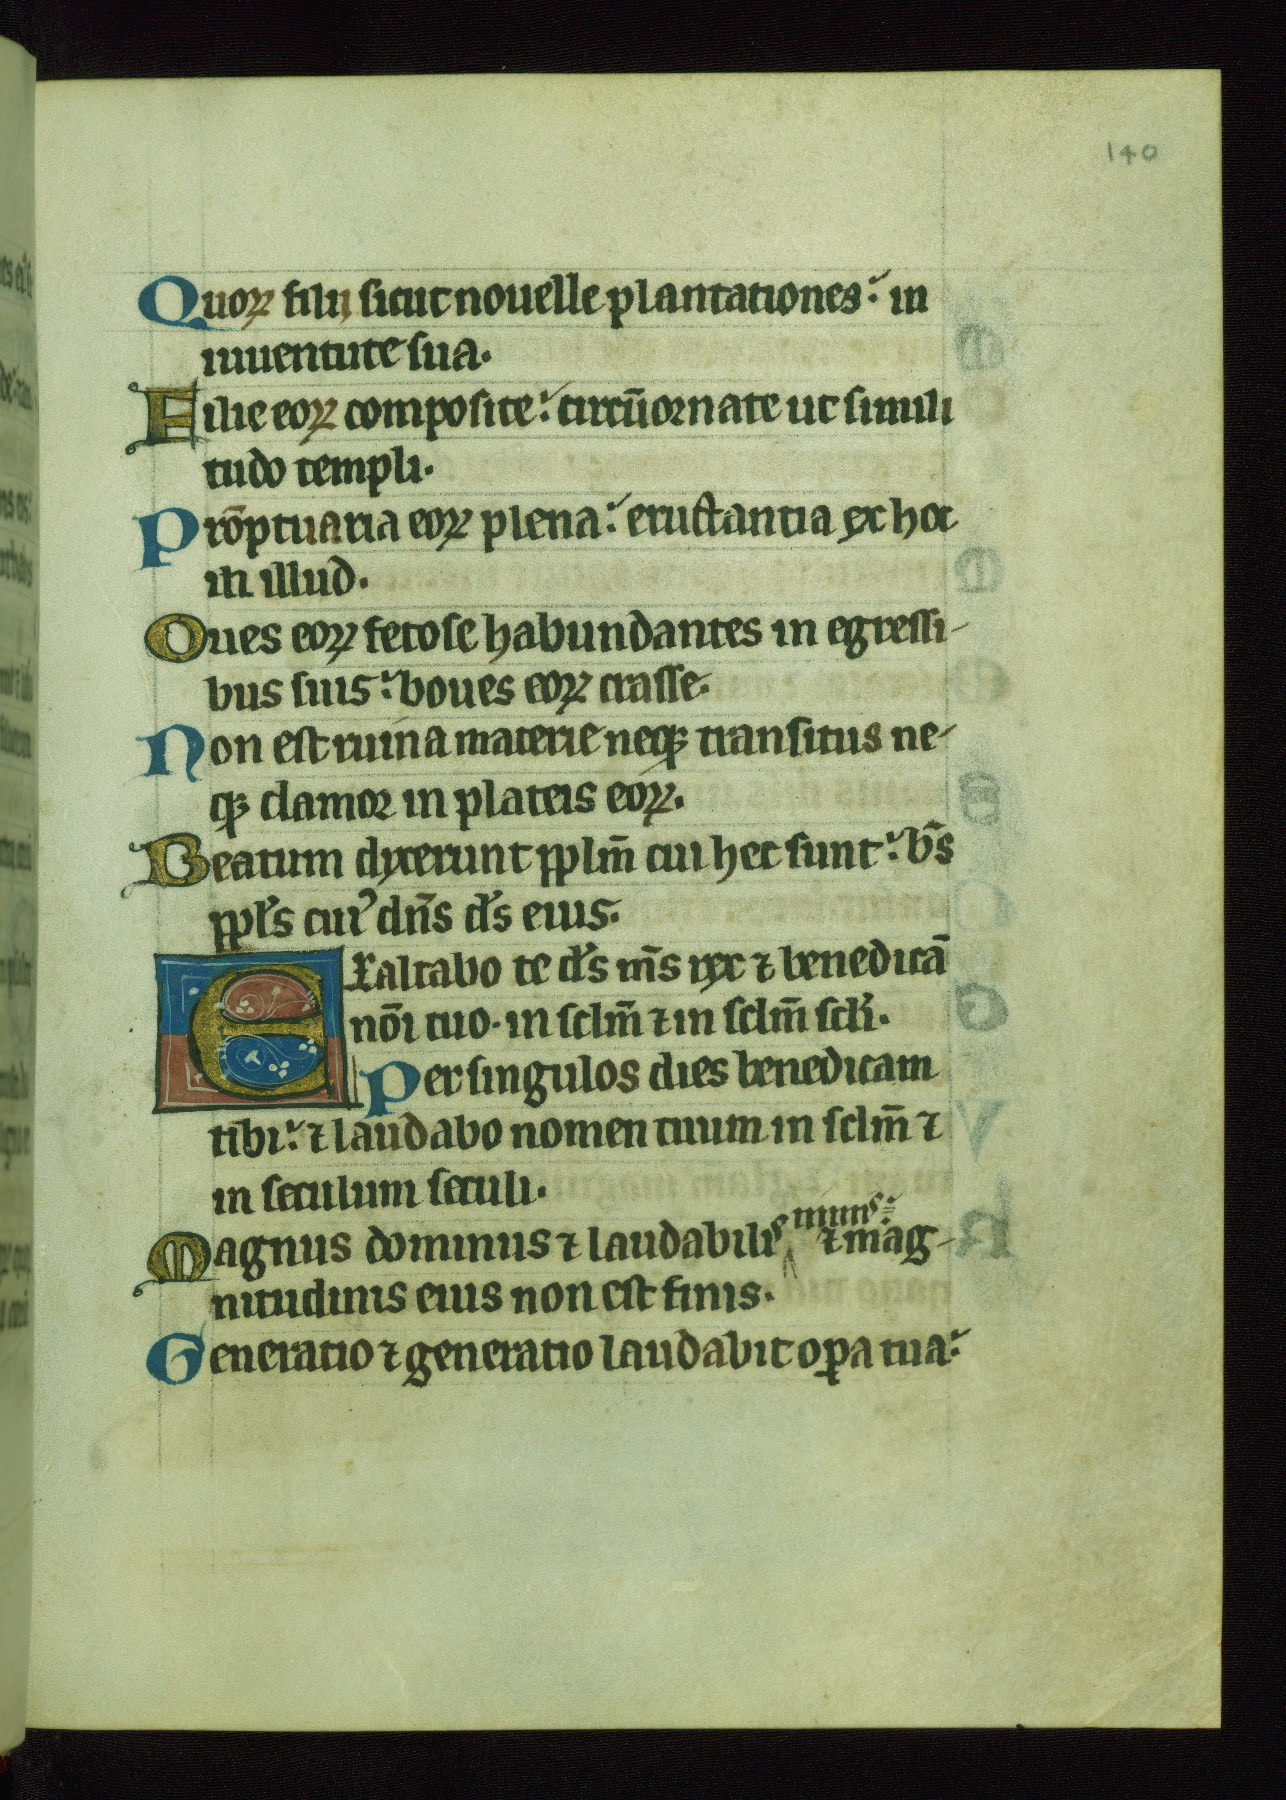 140
Quoꝝ filij sicut nouelle plantationes: in
iuuentute sua.
Filie eoꝝ composite: circūornate ut simili
tudo templi.
Prōptuaria eoꝝ plena: eructantia ex hoc
in illud.
Oues eoꝝ fetose habundantes in egressi-
bus suis: boues eoꝝ crasse.
Non est ruina materie neqꝫ transitus ne-
qꝫ clamor in plateis eoꝝ.
Beatum dyxerunt pplm̄ cui hec sunt: b̄s
ppl's cui' dn̄s ds̄ eius.
Exaltabo te ds̄ m̄s rex ⁊ benedicā
nōi tuo. in sclm̄ ⁊ in sclm̄ scli.
Per singulos dies benedicam
tibi: ⁊ laudabo nomen tuum in sclm̄ ⁊
in seculum seculi.
Magnus dominus ⁊ laudabilis nimis: ⁊ mag-
nitudinis eius non est finis.
Generatio ⁊ generatio laudabit oꝑa tua: